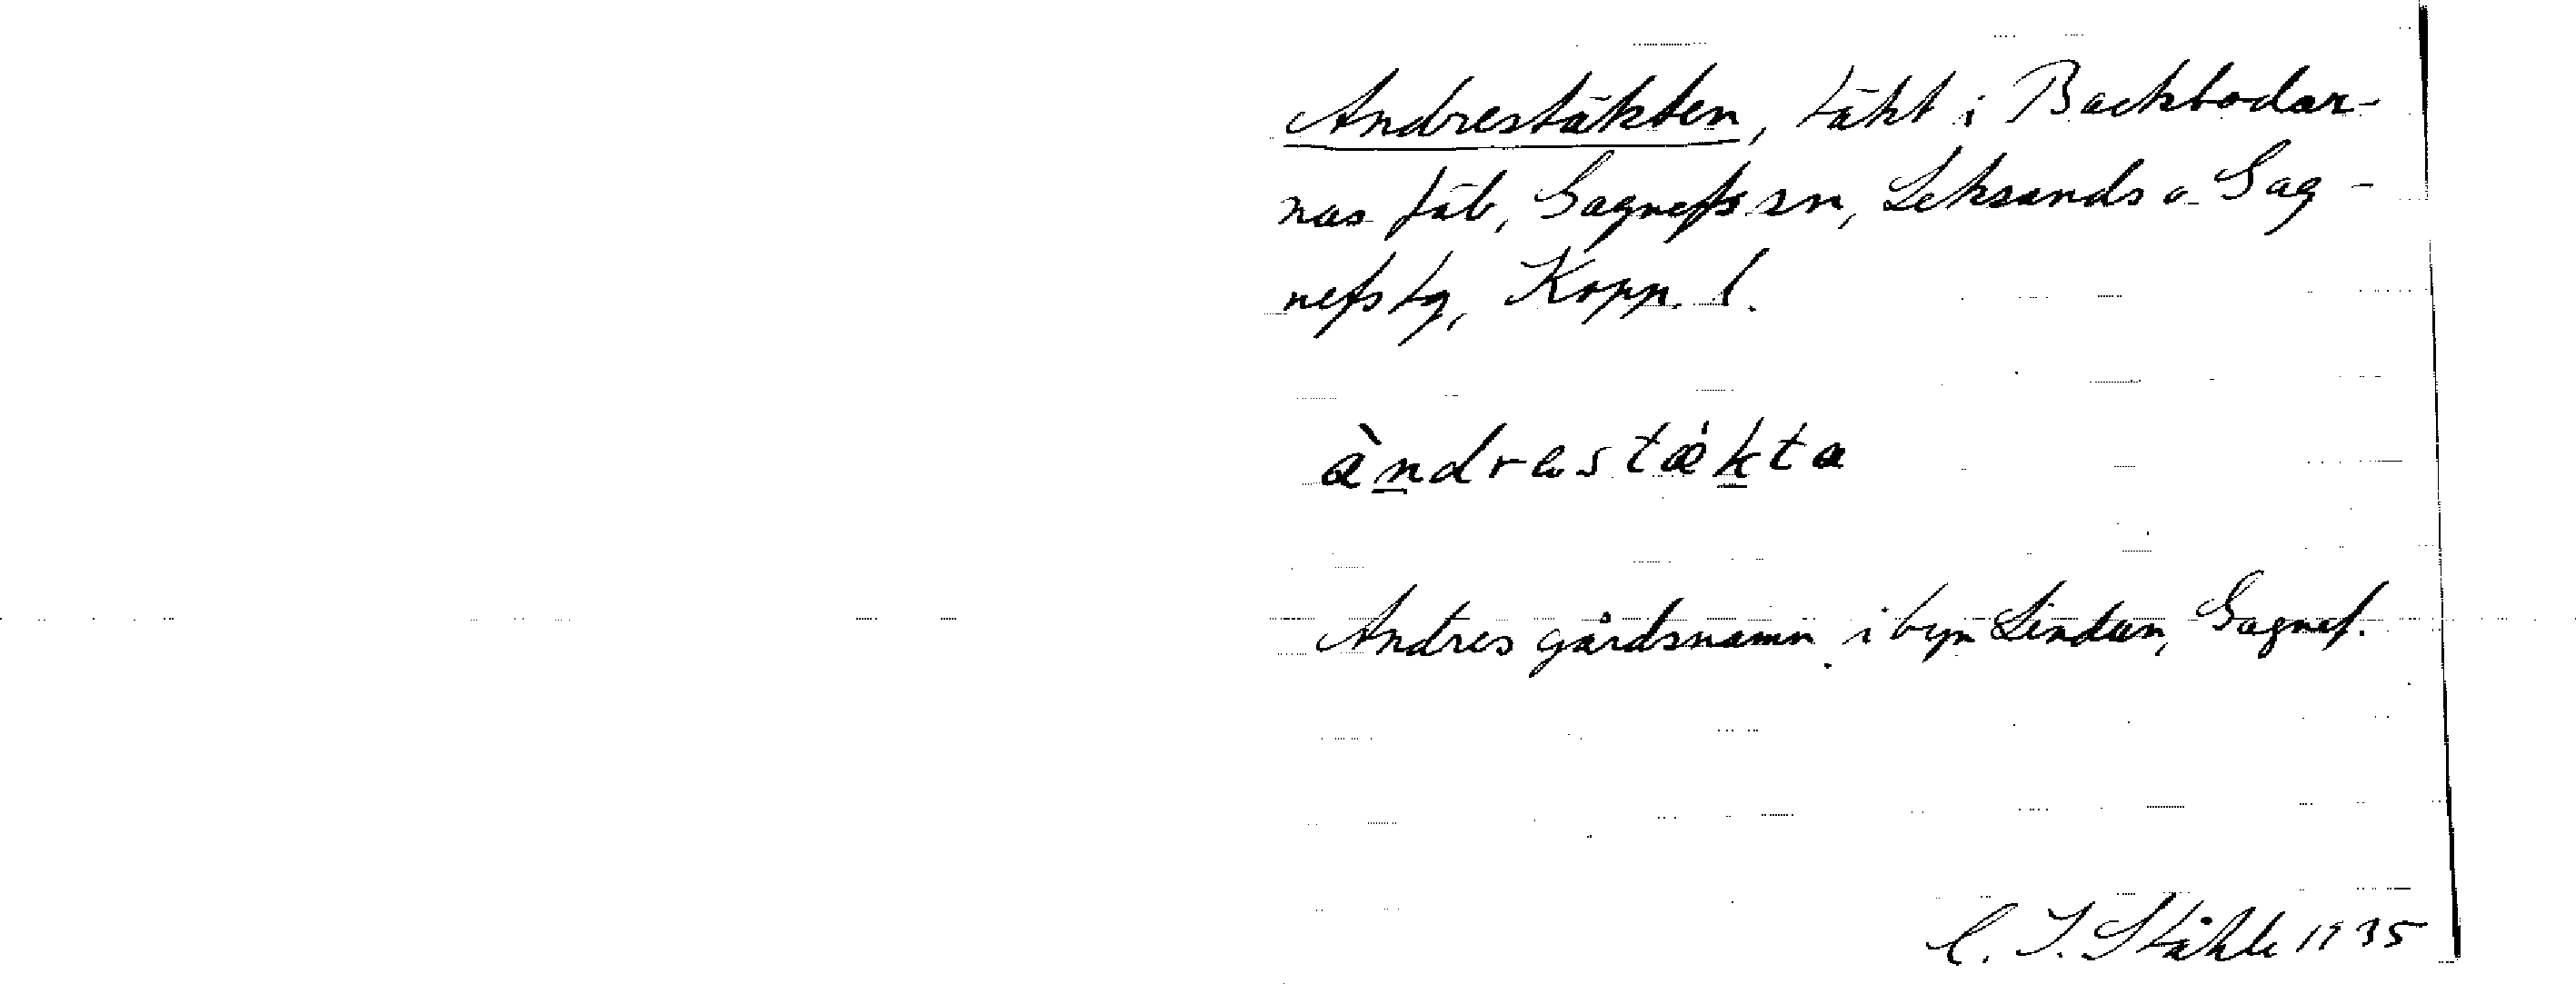 Andrestäkten, täkt i Backbodar-
nas fäb, Gagnefs sn, Leksands o. Gag-
nefs tg, Kopp. l.
àndrastækta
Andres gårdsnamn i byn Lindan, Gagnef.
C. I. Ståhle 1935